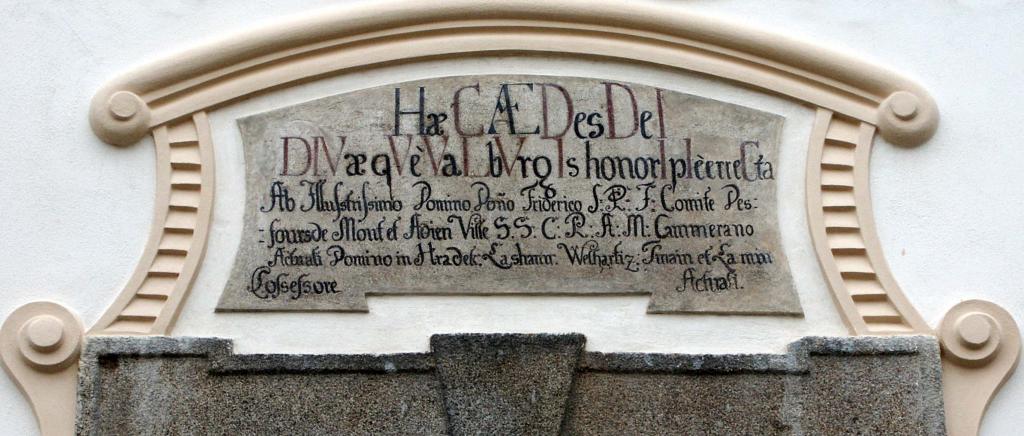 Hæc ÆDes DeI
DIVæqVè VaLbVrgIs honorI pIè erreCta
Ab Illustrissimo Domino Dono Friderico S: R: F: Comite Des=
=foursde Mont et Adien Ville S: S: C: R: A: M: Cammerano
Actuali Domino in Hradek: Lashann: Welhartiz: Tmain et La mpu
Cossessore Actuali.